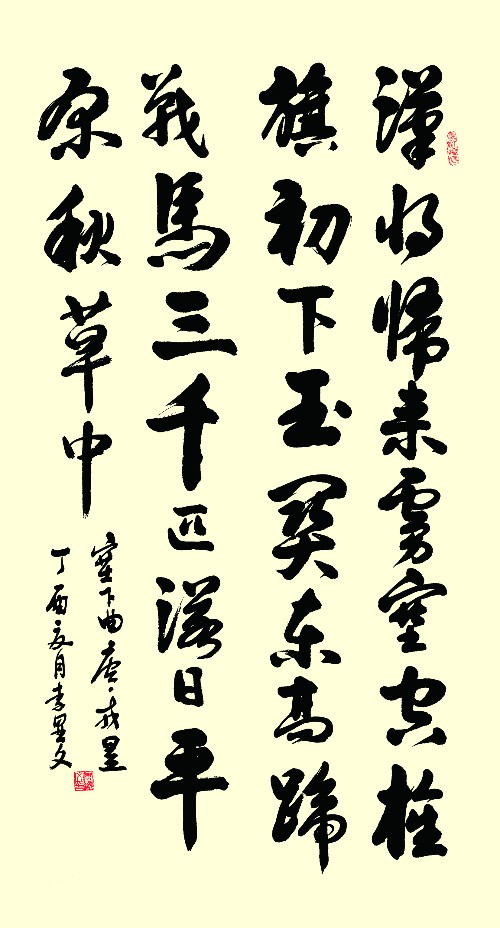 漢将歸来虜塞空旌
旗初下玉關东高蹄
戰馬三千匹落日平
原秋草中
塞下曲唐·戎昱
丁酉夏月李昱文